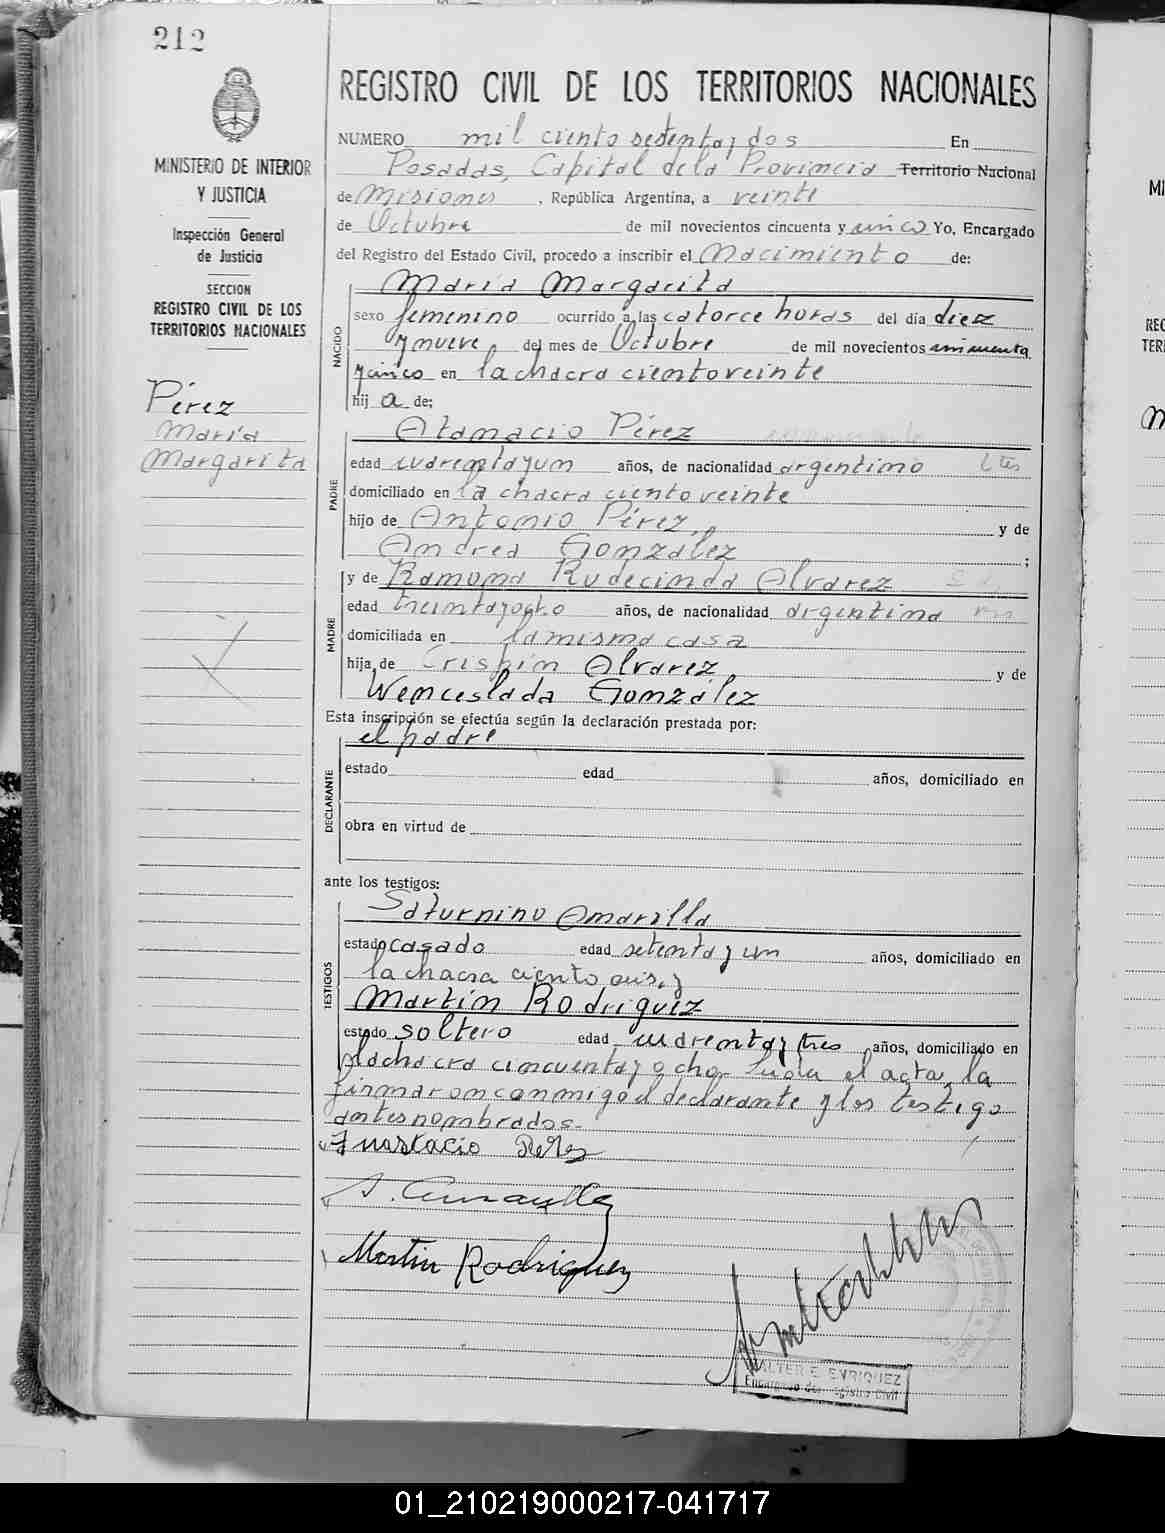 212
MINISTERIO DE INTERIOR
Y JUSTICIA
Inspección General
de Justicia
SECCION
REGISTRO CIVIL DE LOS
TERRITORIOS NACIONALES
Pérez
María
Margarita
REGISTRO CIVIL DE LOS TERRITORIOS NACIONALES
NUMERO mil ciento setenta y dos En
Posadas, Capital de la Provincia Territorio Nacional
de Misiones, República Argentina, a veinte
de Octubre de mil novecientos cincuenta y cinco Yo, Encargado
del Registro del Estado Civil, procedo a inscribir el Nacimiento de:
NACIDO
María Margarita
sexo femenino ocurrido a las catorce horas del día diez
y nueve, del mes de Octubre de mil novecientos cincuenta
y cinco en la chacra ciento veinte
hij a de;
PADRE
Atanacio Pérez
edad cuarenta y un años, de nacionalidad argentino
domiciliado en la chacra ciento veinte
hijo de Antonio Pérez, y de
Andrea González ;
MADRE
y de Ramona Rudecinda Alvarez
edad treinta y ocho años, de nacionalidad argentina
domiciliada en la misma casa
hija de Crispín Alvarez y de
Wenceslada González
Esta inscripción se efectúa según la declaración prestada por:
el padre
DECLARANTE
estado edad años, domiciliado en
obra en virtud de
ante los testigos:
TESTIGOS
Saturnino Amarilla
estado casado edad setenta y un años, domiciliado en
la chacra ciento seis, y
Martín Rodríguez
estado soltero edad cuarenta y tres, años, domiciliado en
la chacra cincuenta y ocho. Leída el acta, la
firmaron conmigo el declarante y los testigo
antes nombrados.-
A. Amarilla
Martin Rodriguez
WALTER E. ENRIQUEZ
Encargado del Registro Civil
MI
REG
TERI
M
01_210219000217-041717